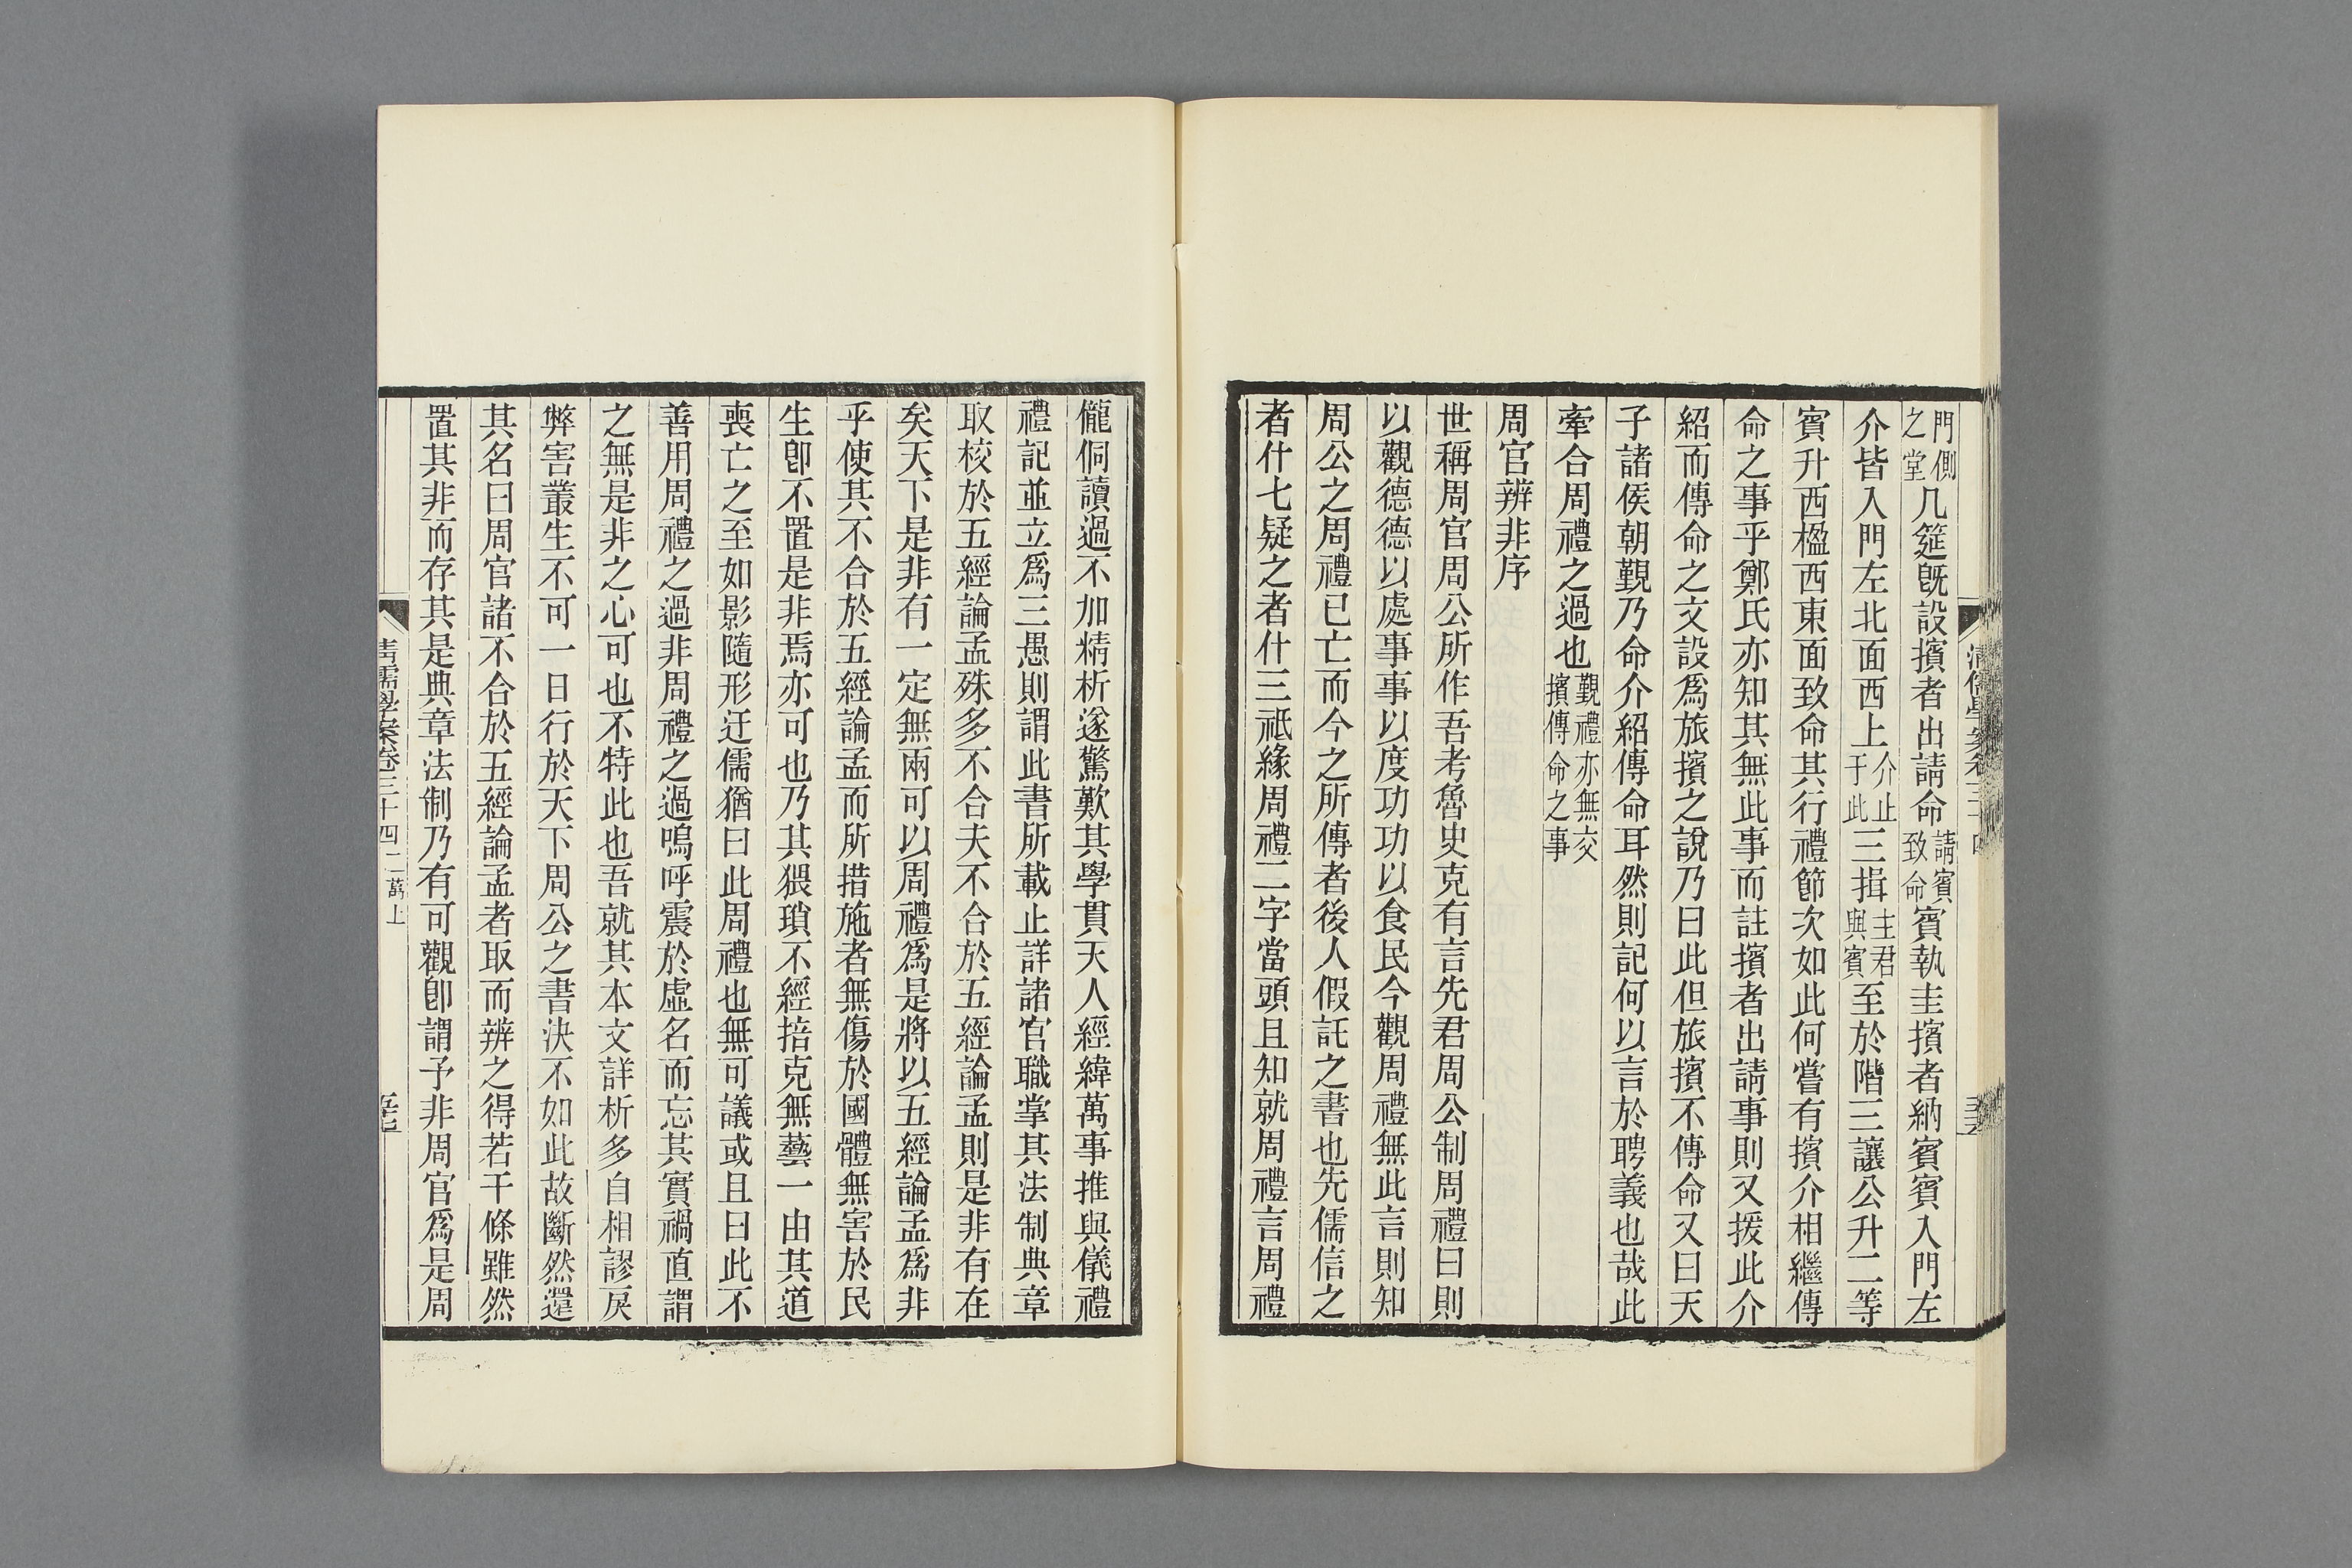 門側之堂几筵旣設擯者出請命請賓致命賓執圭擯者納賓賓入門左
介皆入門左北面西上介止于此三揖主君與賓至於階三讓公升二等
賓升西楹西東面致命其行禮節次如此何嘗有擯介相繼傳
命之事乎鄭氏亦知其無此事而註擯者出請事則又援此介
紹而傳命之文設爲旅擯之說乃曰此但旅擯不傳命又曰天
子諸侯朝覲乃命介紹傳命耳然則記何以言於聘義也哉此
牽合周禮之過也覲禮亦無交擯傳命之事
周官辨非序
世稱周官周公所作吾考魯史克有言先君周公制周禮曰則
以觀德德以處事事以度功功以食民今觀周禮無此言則知
周公之周禮已亡而今之所傳者後人假託之書也先儒信之
者什七疑之者什三祇緣周禮二字當頭且知就周禮言周禮
儱侗讀過不加精析遂驚歎其學貫天人經緯萬事推與儀禮
禮記並立爲三愚則謂此書所載止詳諸官職掌其法制典章
取校於五經論孟殊多不合夫不合於五經論孟則是非有在
矣天下是非有一定無兩可以周禮爲是將以五經論孟爲非
乎使其不合於五經論孟而所措施者無傷於國體無害於民
生卽不置是非焉亦可也乃其猥瑣不經掊克無藝一由其道
喪亡之至如影隨形迂儒猶曰此周禮也無可議或且曰此不
善用周禮之過非周禮之過嗚呼震於虛名而忘其實禍直謂
之無是非之心可也不特此也吾就其本文詳析多自相謬戾
弊害叢生不可一日行於天下周公之書決不如此故斷然還
其名曰周官諸不合於五經論孟者取而辨之得若干條雖然
置其非而存其是典章法制乃有可觀卽謂予非周官爲是周
清儒學案卷三十四二萬上